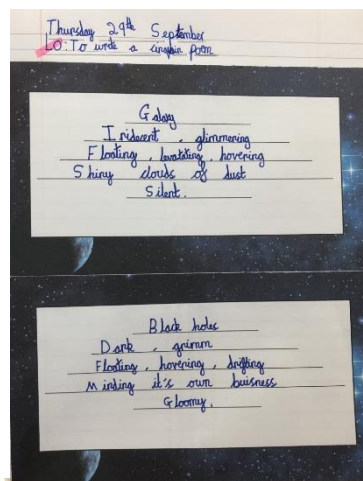 Thursday 29th September
LO: To write a cinquain poem
Galaxy
Iridecent, glimmering
Floating, levatating, hovering
Shiny clouds of dust
Silent.
Black holes
Dark, grimm
Floating, hovering, drifting
Minding it's own buisness
Gloomy.